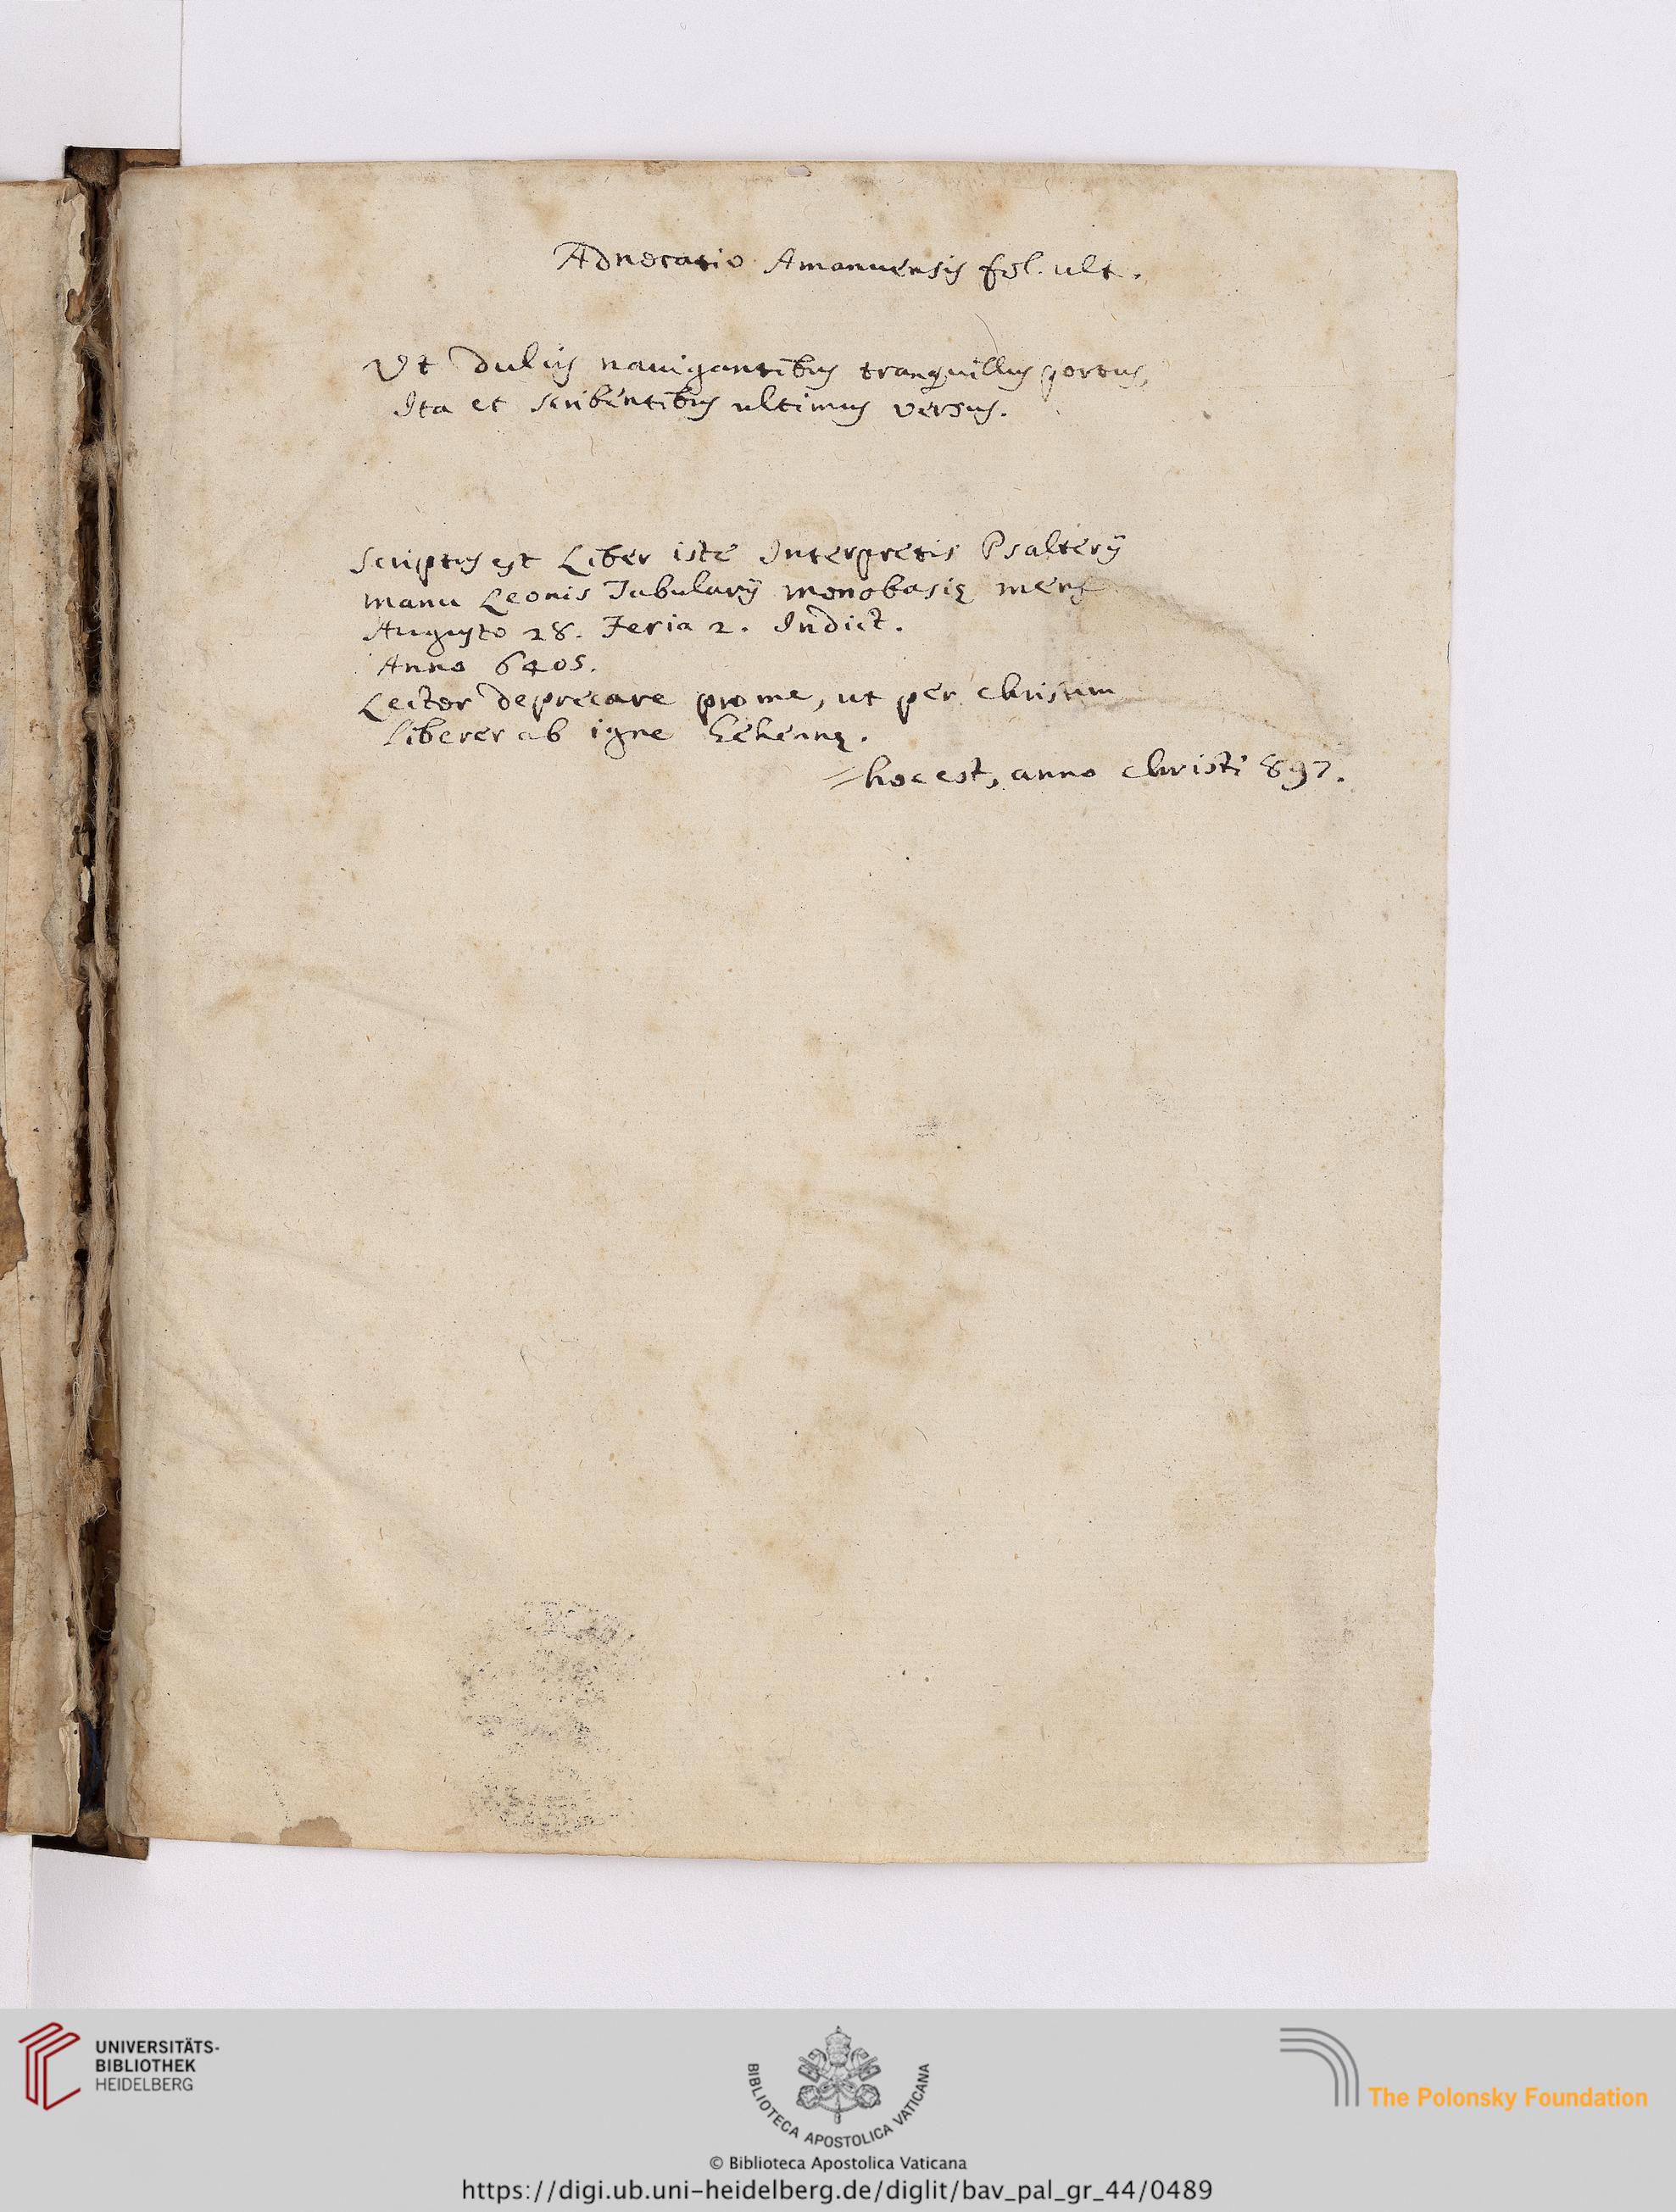 Adnotatio Amanuensis fol. ult.
Vt dulcis nauigantibus tranquillus portus,
Ita et scribentibus ultimus versus.
Scriptus est Liber iste Interpretis Psalterij
manu Leonis Tabularij monobasię mens
Augusto 28. Feria 2. Indict.
Anno 6405.
Lector deprecare pro me, ut per christum
liberer ab igne Gehennę.
hoc est, anno christi 897.
UNIVERSITÄTS-
BIBLIOTHEK
HEIDELBERG
BIBLIOTECA APOSTOLICA VATICANA
The Polonsky Foundation
© Biblioteca Apostolica Vaticana
https://digi.ub.uni-heidelberg.de/diglit/bav_pal_gr_44/0489